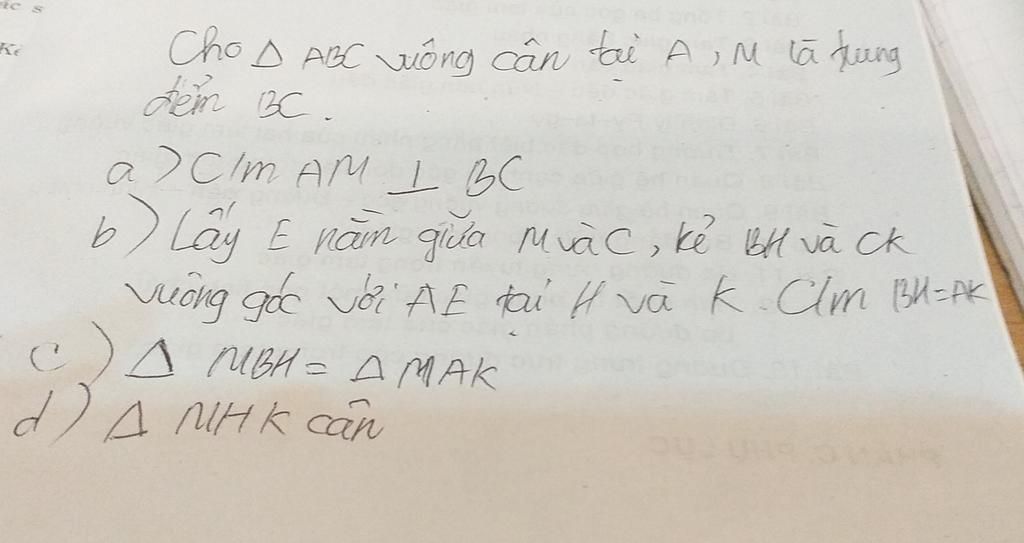 Cho Δ ABC vuông cân tại A, M là trung
điểm BC.
a) C/m AM ⊥ BC
b) Lấy E nằm giữa M và C, kẻ BH và CK
vuông góc với AE tại H và K. C/m BH = AK
c) Δ MBH = Δ MAK
d) Δ MHK cân